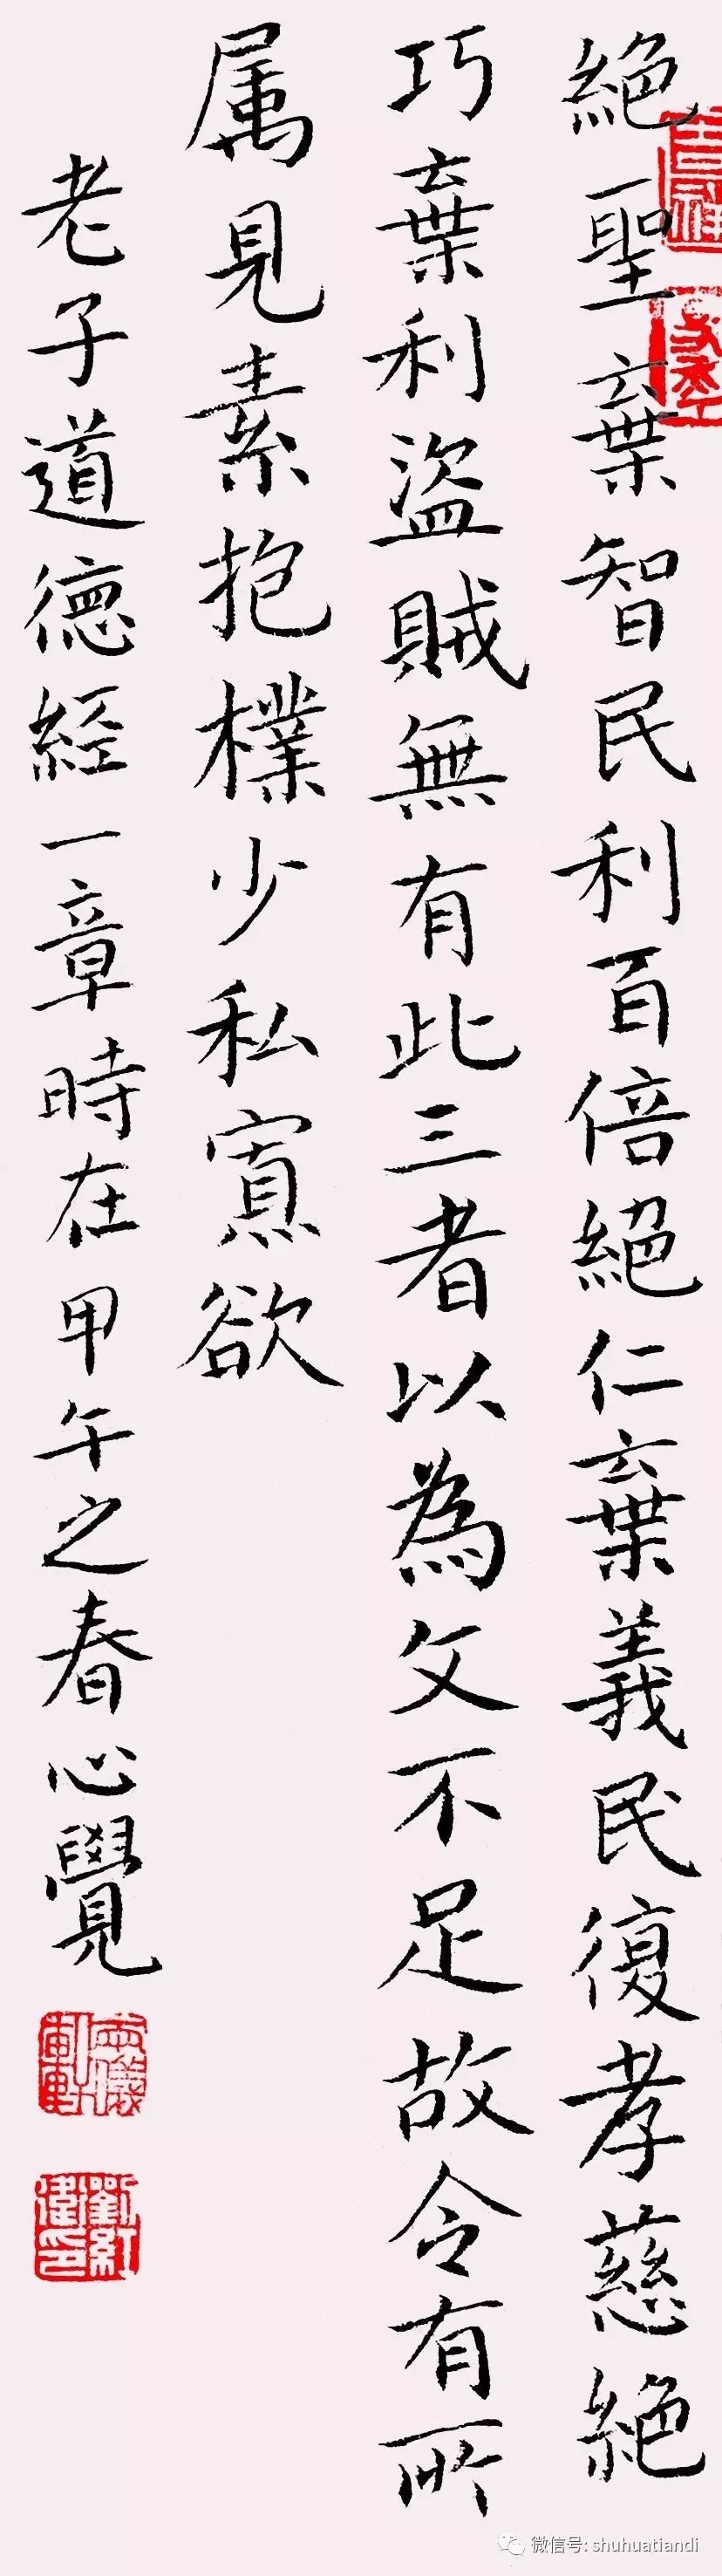 絕聖棄智民利百倍絕仁棄義民復孝慈絕
巧棄利盜賊無有此三者以為文不足故令有所
属見素抱樸少私寡欲
老子道德経一章時在甲午之春心覺
微信号: shuhuatiandi